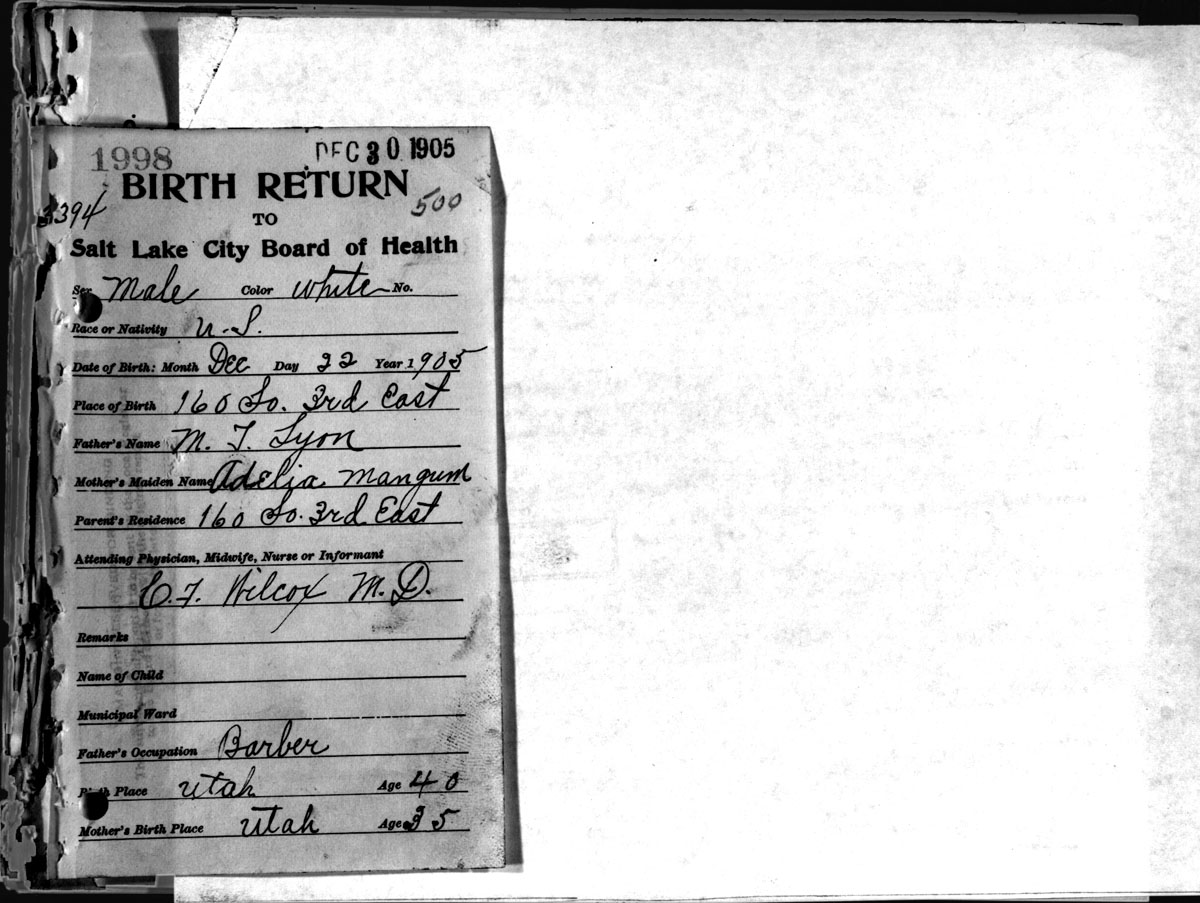 1998 DEC 30 1905
BIRTH RETURN
3394 TO 500
Salt Lake City Board of Health
Sex Male Color White No.
Race or Nativity U.S.
Date of Birth: Month Dec Day 22 Year 1905
Place of Birth 160 So. 3rd East
Father's Name M. T. Lyon
Mother's Maiden Name Adelia Mangum
Parent's Residence 160 So. 3rd East
Attending Physician, Midwife, Nurse or Informant
C. F. Wilcox M.D.
Remarks
Name of Child
Municipal Ward
Father's Occupation Barber
Birth Place Utah Age 40
Mother's Birth Place Utah Age 35